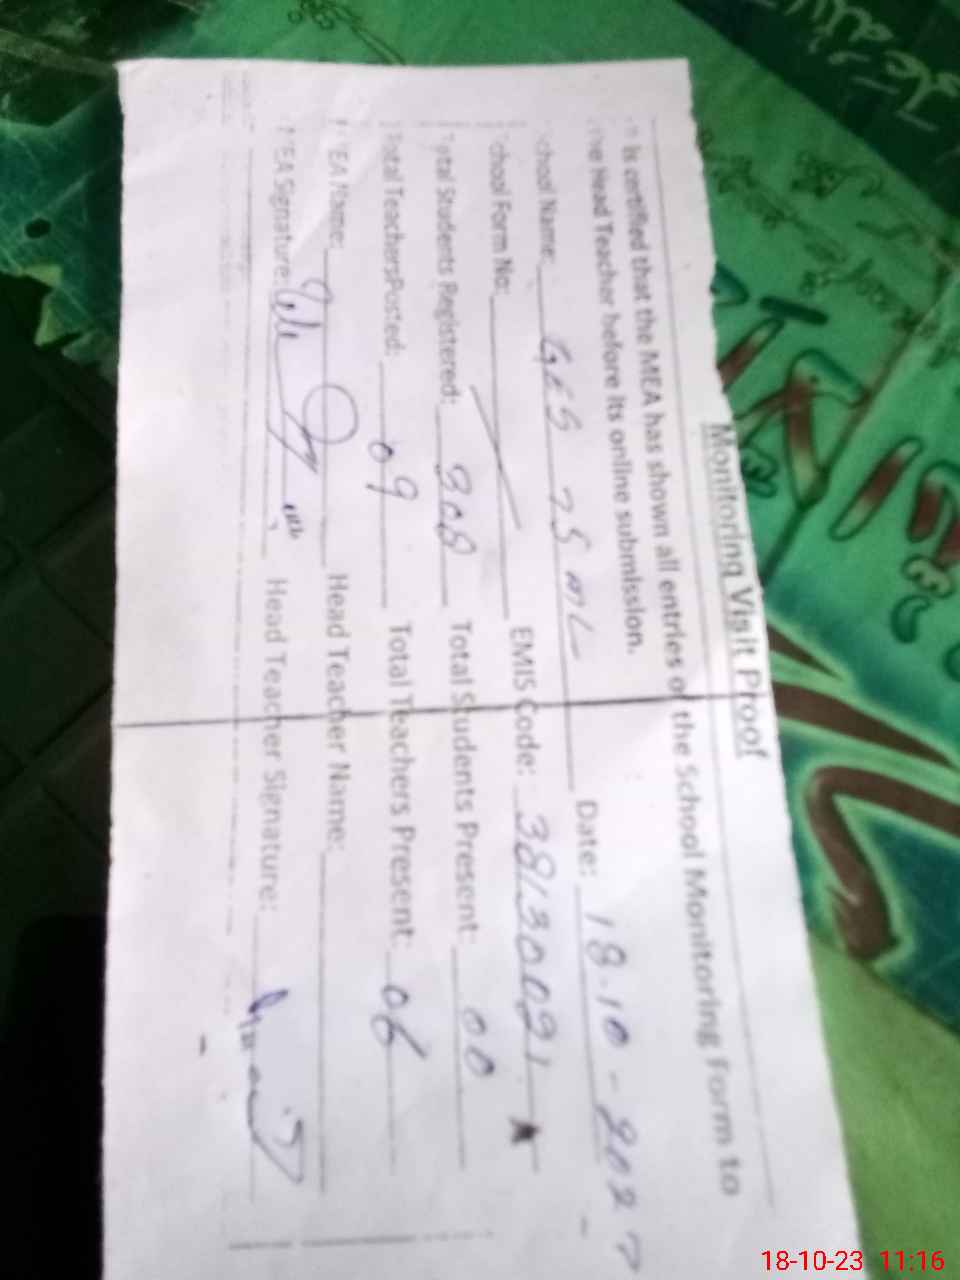 Monitoring Visit Proof
is certified that the MEA has shown all entries of the School Monitoring Form to
the Head Teacher before its online submission.
School Name: GES 75 ML Date: 18-10-202
School Form No: EMIS Code: 38130091
Total Students Registered: 308 Total Students Present: 00
Total Teachers Posted: 09 Total Teachers Present: 06
MEA Name: Head Teacher Name:
MEA Signature: Head Teacher Signature:
18-10-23 11:16